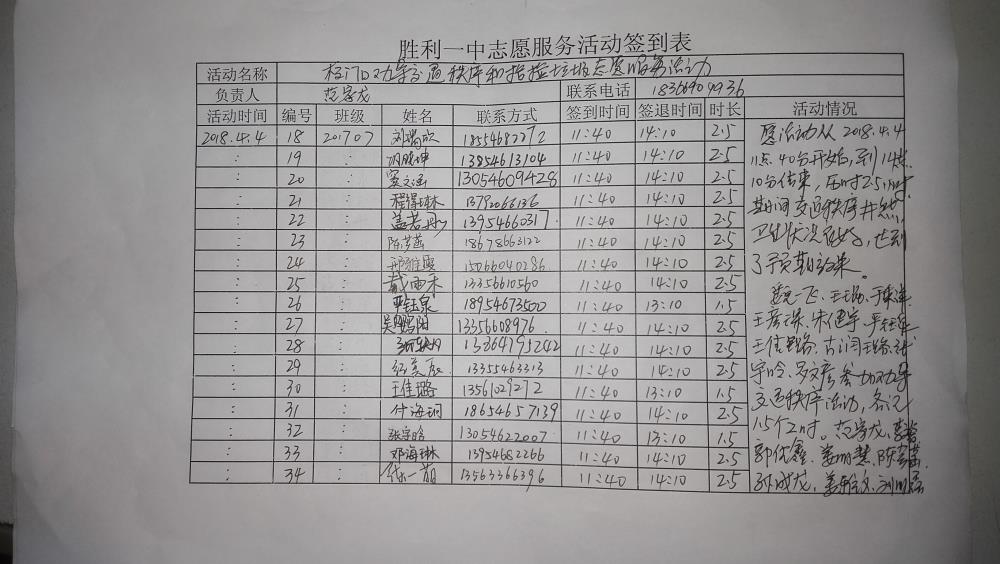 胜利一中志愿服务活动签到表
活动名称 校门口劝导交通秩序和捡拾垃圾志愿服务活动
负责人 范家龙 联系电话 18366909936
活动时间 编号 班级 姓名 联系方式 签到时间 签退时间 时长 活动情况
2018.4.4 18 201707 刘瑞欣 18554682272 11:40 14:10 2.5
: 19 : 13854613104 11:40 14:10 2.5
: 20 : 窦文涵 13054609428 11:40 14:10 2.5
: 21 : 程得琳 13792066136 11:40 14:10 2.5
: 22 : 盖若丹 13954660317 11:40 14:10 2.5
: 23 : 陈梦菡 18678663122 11:40 14:10 2.5
: 24 : 邢雅雯 15066040286 11:40 14:10 2.5
: 25 : 戴雨禾 13356610560 11:40 14:10 2.5
: 26 : 平钰泉 18954673500 11:40 13:10 1.5
: 27 : 吴鹏阳 13356608976 11:40 14:10 2.5
: 28 : 11:40 14:10 2.5
: 29 : 纪美辰 13355463313 11:40 14:10 2.5
: 30 : 王佳璐 13561029272 11:40 13:10 1.5
: 31 : 付海玥 18654657139 11:40 14:10 2.5
: 32 : 张宇晗 13054622007 11:40 13:10 1.5
: 33 : 邓海琳 13954682266 11:40 14:10 2.5
: 34 : 张一萌 13563366396 11:40 14:10 2.5
愿活动从2018.4.4
11点40分开始,到14点
10分结束,历时2.5小时
期间交通秩序井然,
卫生状况良好,达到
了预期效果。
交通秩序活动,各记
1.5个工时。范家龙、
郭优鑫、姜明慧、陈梦菡、
孙成龙、